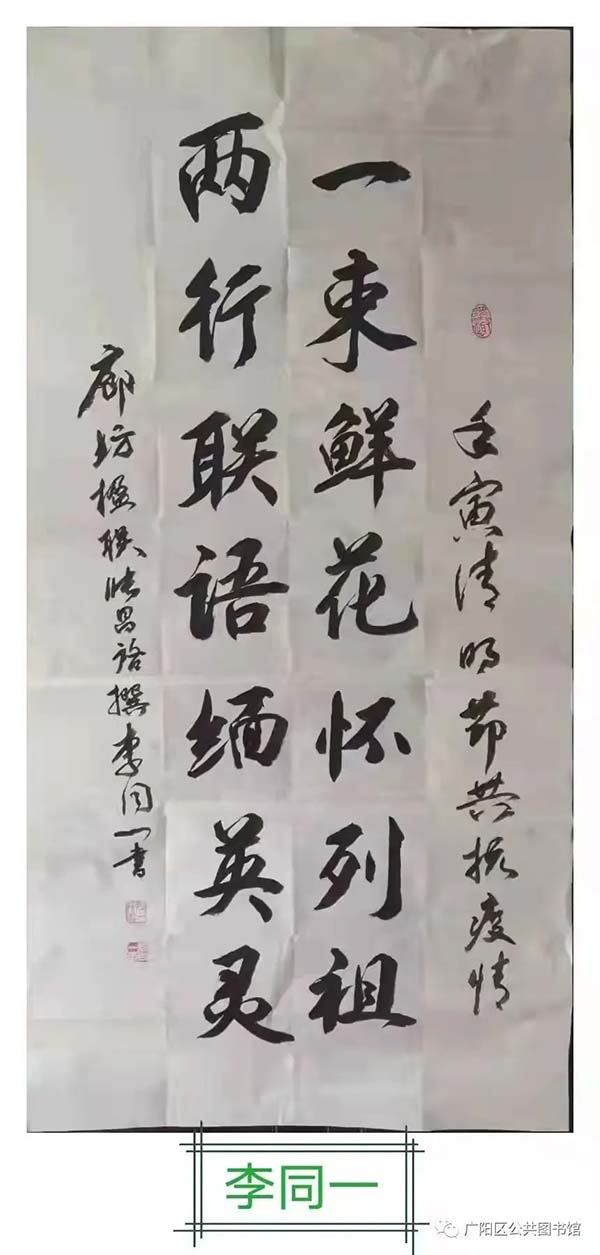 壬寅清明节共抗疫情
一束鲜花怀列祖
两行联语缅英灵
廊坊楹联张昌撰李同一书
李同一
广阳区公共图书馆